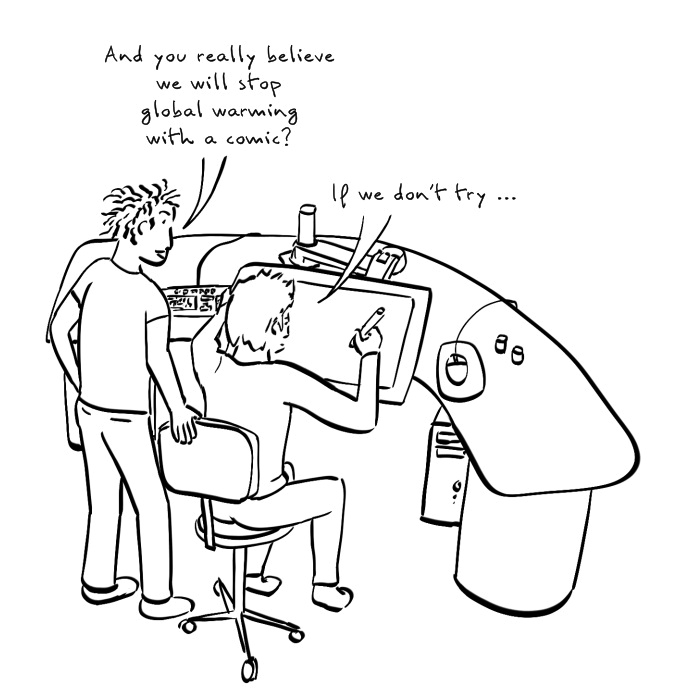 And you really believe
we will stop
global warming
with a comic?
If we don't try ...